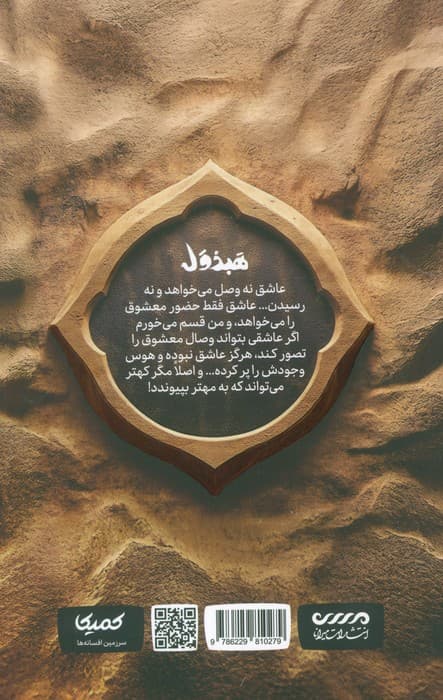 هبذول
عاشق نه وصل می‌خواهد و نه
رسیدن... عاشق فقط حضور معشوق
را می‌خواهد، و من قسم می‌خورم
اگر عاشقی بتواند وصال معشوق را
تصور کند، هرگز عاشق نبوده و هوس
وجودش را پر کرده... و اصلاً مگر کهتر
می‌تواند که به مهتر بپیوندد!
کمیکا
سرزمین افسانه‌ها
9 786229 810279